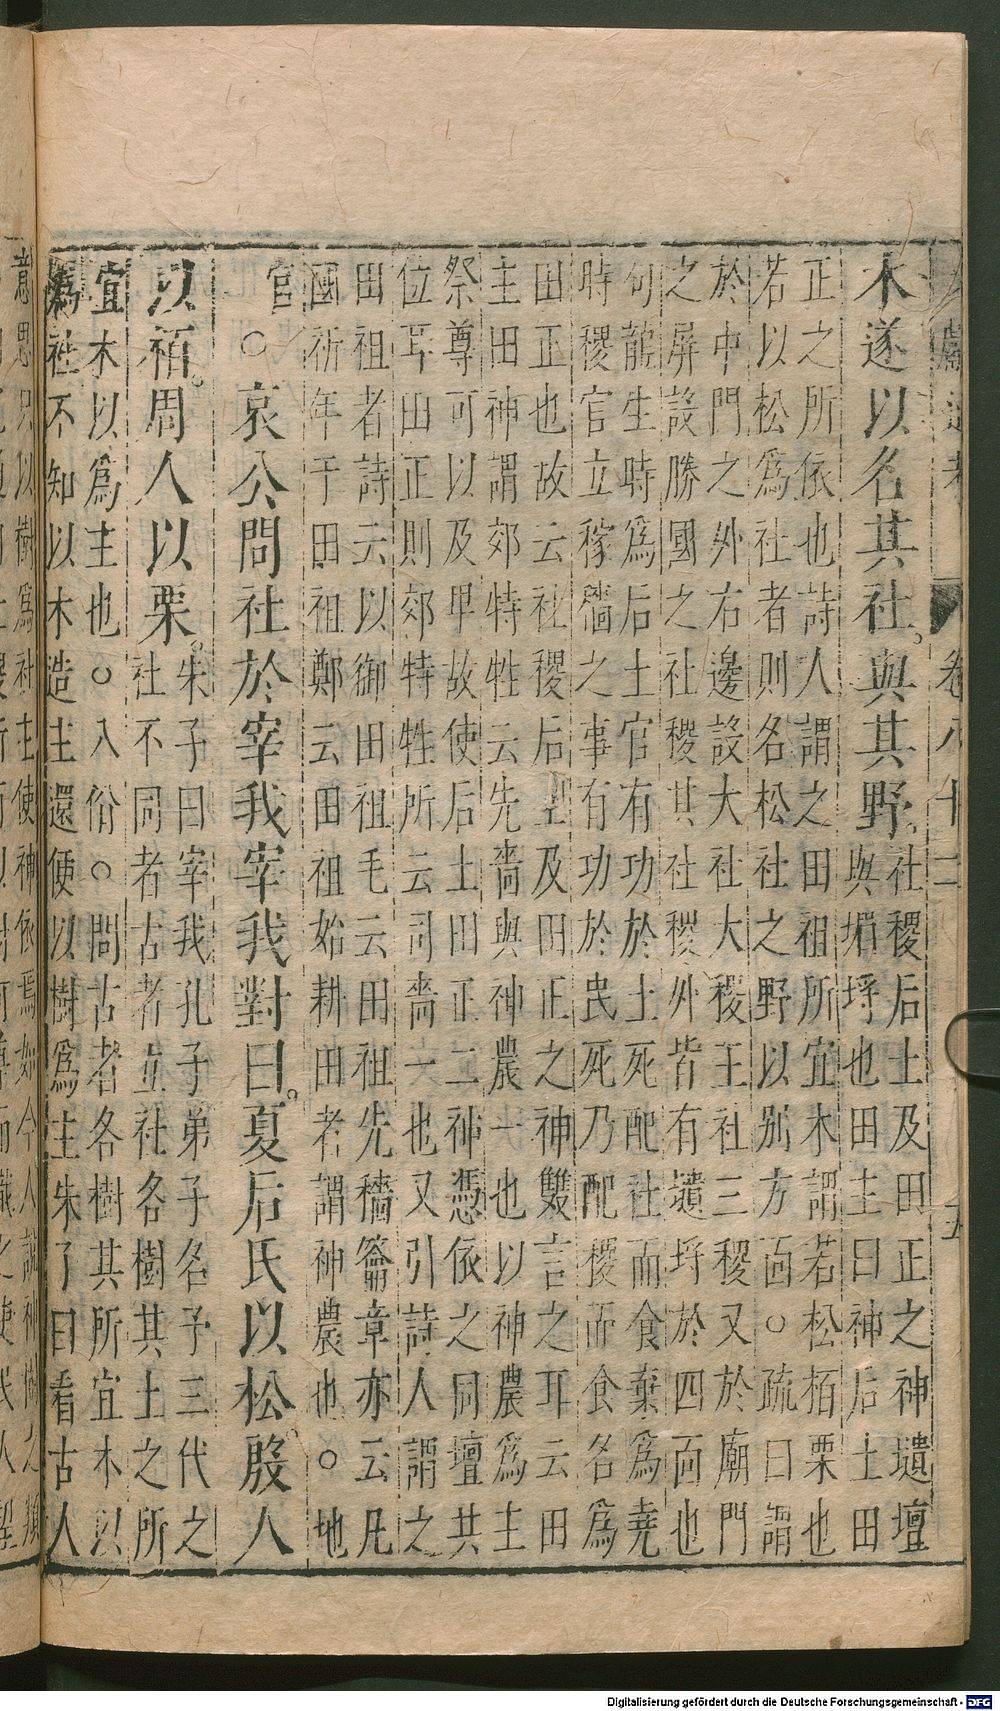 木遂以名其社與其野社稷后土及田正之神壝壇
與堳埒也田主曰神后土田
正之所依也詩人謂之田祖所宜木謂若松栢栗也
若以松爲社者則名松社之野以別方面○疏曰謂
於中門之外右邊設大社大稷王社三稷又於廟門
之屏設勝國之社稷其社稷外皆有壝埒於四面也
句龍生時爲后土官有功於土死配社而食棄爲堯
時稷官立稼穡之事有功於民死乃配稷而食名爲
田正也故云社稷后土及田正之神雙言之耳云田
主田神謂郊特牲云先嗇與神農一也以神農爲主
祭尊可以及卑故使后土田正二神憑依之同壇共
位耳田正則郊特牲所云司嗇一也又引詩人謂之
田祖者詩云以御田祖毛云田祖先穡籥章亦云凡
國祈年于田祖鄭云田祖始耕田者謂神農也○地
官
○哀公問社於宰我宰我對曰夏后氏以松殷人
以栢周人以栗朱子曰宰我孔子弟子名予三代之
社不同者古者立社各樹其土之所
宜木以爲主也○入俗○問古者各樹其所宜木以
爲社不知以木造主還便以樹爲主朱子曰看古人
意思只以樹爲社主使神依焉如今人說神樹之類
獻通考
卷八十二
五
Digitalisierung gefördert durch die Deutsche Forschungsgemeinschaft - DFG